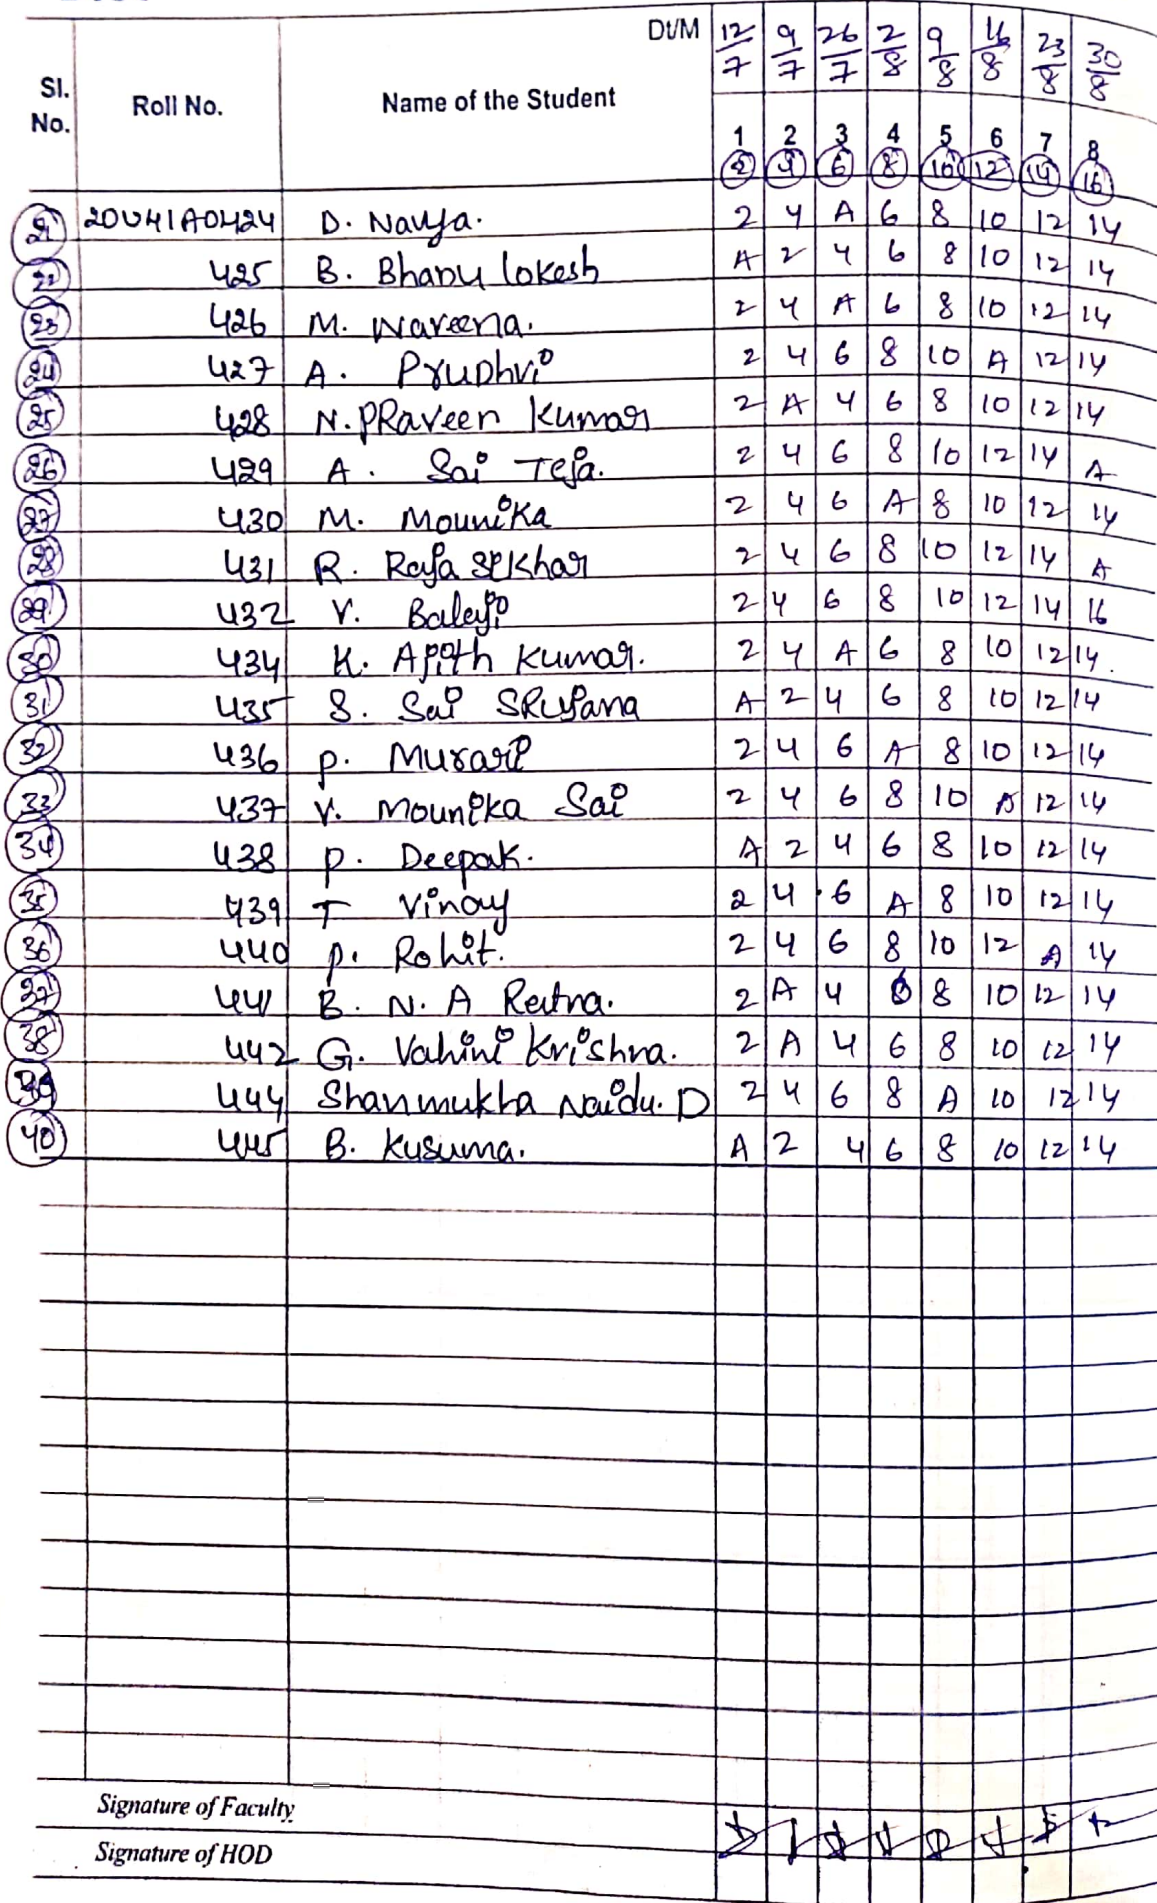 Dt/M 12/7 9/7 26/7 2/8 9/8 16/8 23/8 30/8
Sl. No. Roll No. Name of the Student
1 2 3 4 5 6 7 8
2 4 6 8 10 12 14 16
21 20U41A0424 D. Navya. 2 4 A 6 8 10 12 14
22 425 B. Bhanu lokesh A 2 4 6 8 10 12 14
23 426 M. Naveena. 2 4 A 6 8 10 12 14
24 427 A. Prudhvi 2 4 6 8 10 A 12 14
25 428 N. PRaveen Kumar 2 A 4 6 8 10 12 14
26 429 A. Sai Teja. 2 4 6 8 10 12 14 A
27 430 M. Mounika 2 4 6 A 8 10 12 14
28 431 R. Raja Sekhar 2 4 6 8 10 12 14 A
29 432 V. Balaji 2 4 6 8 10 12 14 16
30 434 K. Ajith Kumar. 2 4 A 6 8 10 12 14.
31 435 S. Sai SRujana A 2 4 6 8 10 12 14
32 436 P. Murari 2 4 6 A 8 10 12 14
33 437 V. Mounika Sai 2 4 6 8 10 A 12 14
34 438 P. Deepak. A 2 4 6 8 10 12 14
35 439 T Vinay 2 4 6 A 8 10 12 14
36 440 P. Rohit. 2 4 6 8 10 12 A 14
37 441 B. N. A Ratna. 2 A 4 6 8 10 12 14
38 442 G. Vahini Krishna. 2 A 4 6 8 10 12 14
39 444 Shanmukha Naidu. D 2 4 6 8 A 10 12 14
40 445 B. Kusuma. A 2 4 6 8 10 12 14
Signature of Faculty
Signature of HOD